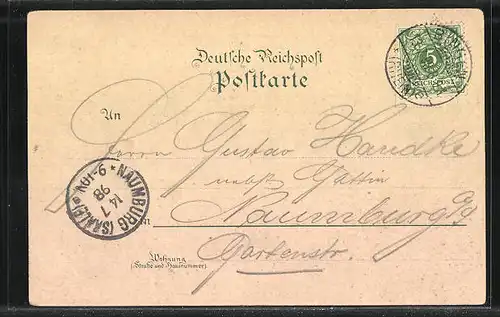 Deutsche Reichspost
Postkarte
5
REICHSPOST
An
Herrn Gustav Handke
nebst Gattin
in Naumburg a/S
Gartenstr.
Wohnung
(Straße und Hausnummer)
* NAUMBURG (SAALE) *
14 1
98